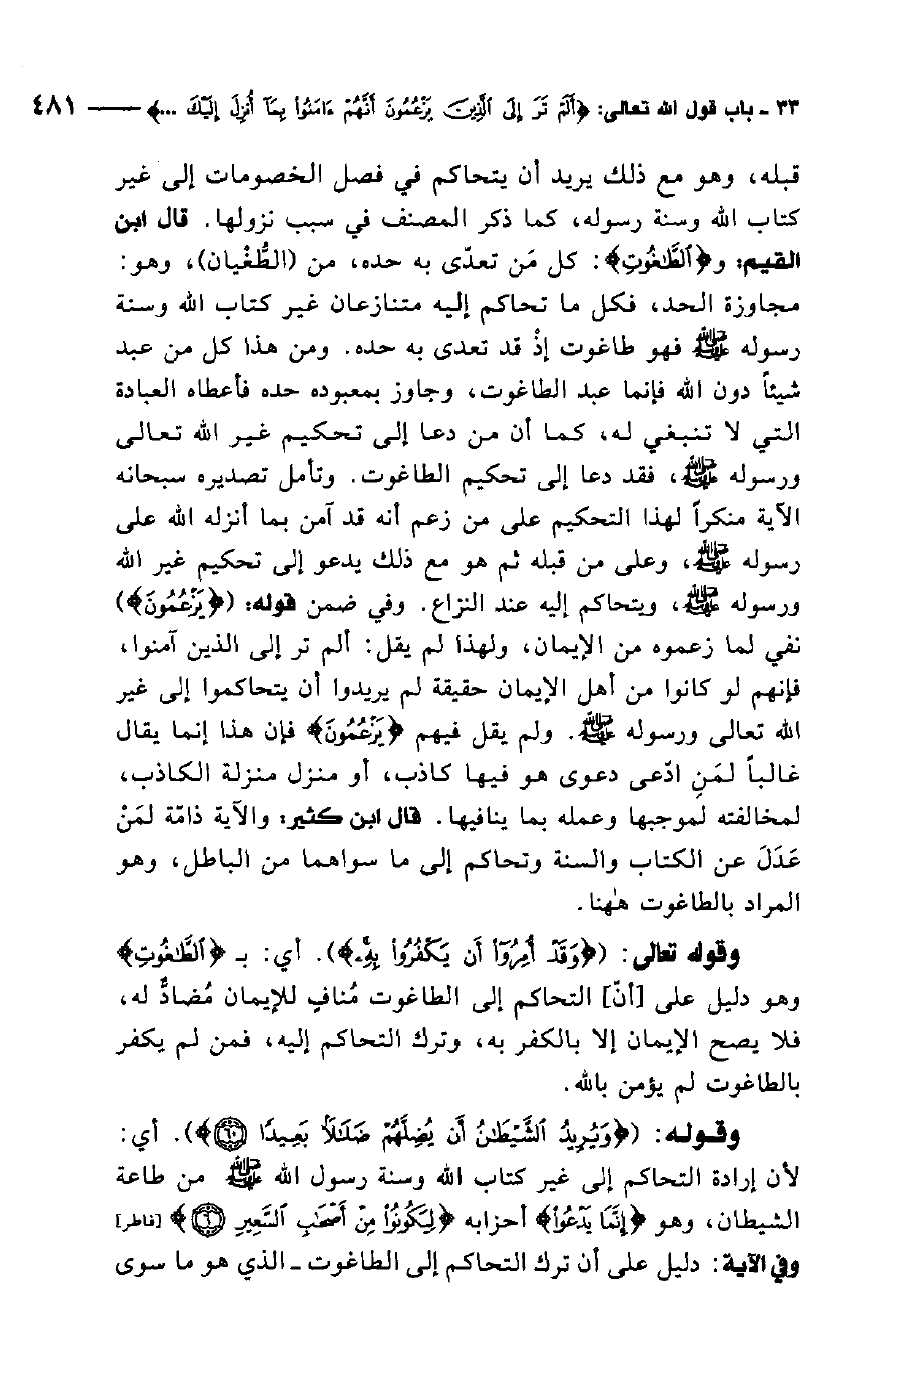 ٣٣ - باب قول الله تعالى: ﴿أَلَمْ تَرَ إِلَى الَّذِينَ يَزْعُمُونَ أَنَّهُمْ ءَامَنُوا بِمَا أُنزِلَ إِلَيْكَ ...﴾ —— ٤٨١
قبله، وهو مع ذلك يريد أن يتحاكم في فصل الخصومات إلى غير
كتاب الله وسنة رسوله، كما ذكر المصنف في سبب نزولها. قال ابن
القيم: و﴿الطَّاغُوتِ﴾: كل مَن تعدّى به حده، من (الطُّغْيان)، وهو:
مجاوزة الحد، فكل ما تحاكم إليه متنازعان غير كتاب الله وسنة
رسوله ﷺ فهو طاغوت إذْ قد تعدى به حده. ومن هذا كل من عبد
شيئاً دون الله فإنما عبد الطاغوت، وجاوز بمعبوده حده فأعطاه العبادة
التي لا تنبغي له، كما أن من دعا إلى تحكيم غير الله تعالى
ورسوله ﷺ، فقد دعا إلى تحكيم الطاغوت. وتأمل تصديره سبحانه
الآية منكراً لهذا التحكيم على من زعم أنه قد آمن بما أنزله الله على
رسوله ﷺ، وعلى من قبله ثم هو مع ذلك يدعو إلى تحكيم غير الله
ورسوله ﷺ، ويتحاكم إليه عند النزاع. وفي ضمن قوله: (﴿يَزْعُمُونَ﴾)
نفي لما زعموه من الإيمان، ولهذا لم يقل: ألم تر إلى الذين آمنوا،
فإنهم لو كانوا من أهل الإيمان حقيقة لم يريدوا أن يتحاكموا إلى غير
الله تعالى ورسوله ﷺ. ولم يقل فيهم ﴿يَزْعُمُونَ﴾ فإن هذا إنما يقال
غالباً لمَنِ ادّعى دعوى هو فيها كاذب، أو منزل منزلة الكاذب،
لمخالفته لموجبها وعمله بما ينافيها. قال ابن كثير: والآية ذامّة لمَنْ
عَدَلَ عن الكتاب والسنة وتحاكم إلى ما سواهما من الباطل، وهو
المراد بالطاغوت هٰهنا.
وقوله تعالى: (﴿وَقَدْ أُمِرُوا أَن يَكْفُرُوا بِهِ﴾). أي: بـ ﴿الطَّاغُوتِ﴾
وهو دليل على [أنّ] التحاكم إلى الطاغوت مُنافٍ للإيمان مُضادٌّ له،
فلا يصح الإيمان إلا بالكفر به، وترك التحاكم إليه، فمن لم يكفر
بالطاغوت لم يؤمن بالله.
وقوله: (﴿وَيُرِيدُ الشَّيْطَانُ أَن يُضِلَّهُمْ ضَلَالًا بَعِيدًا ٦٠﴾). أي:
لأن إرادة التحاكم إلى غير كتاب الله وسنة رسول الله ﷺ من طاعة
الشيطان، وهو ﴿إِنَّمَا يَدْعُوا﴾ أحزابه ﴿لِيَكُونُوا مِنْ أَصْحَابِ السَّعِيرِ ٦﴾ [فاطر]
وفي الآية: دليل على أن ترك التحاكم إلى الطاغوت ـ الذي هو ما سوى